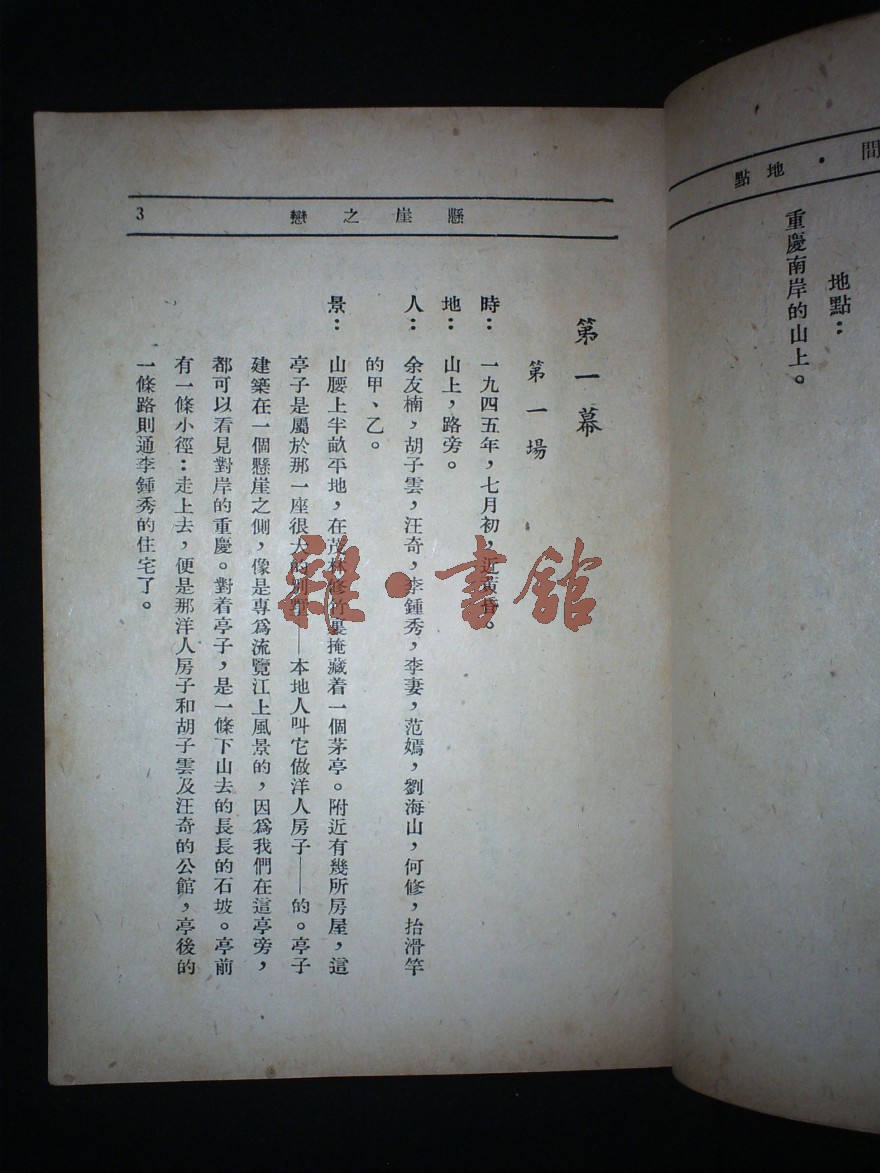 間・地點
地點：
重慶南岸的山上。
懸崖之戀
3
第一幕
第一場
時：一九四五年，七月初，近黃昏。
地：山上，路旁。
人：余友楠，胡子雲，汪奇，李鍾秀，李妻，范嫣，劉海山，何修，抬滑竿
的甲、乙。
景：山腰上半畝平地，在茂林修竹裏掩藏着一個茅亭。附近有幾所房屋，這
亭子是屬於那一座很大的別墅——本地人叫它做洋人房子——的。亭子
建築在一個懸崖之側，像是專爲流覽江上風景的，因爲我們在這亭旁，
都可以看見對岸的重慶。對着亭子，是一條下山去的長長的石坡。亭前
有一條小徑：走上去，便是那洋人房子和胡子雲及汪奇的公館，亭後的
一條路則通李鍾秀的住宅了。
雜·書館